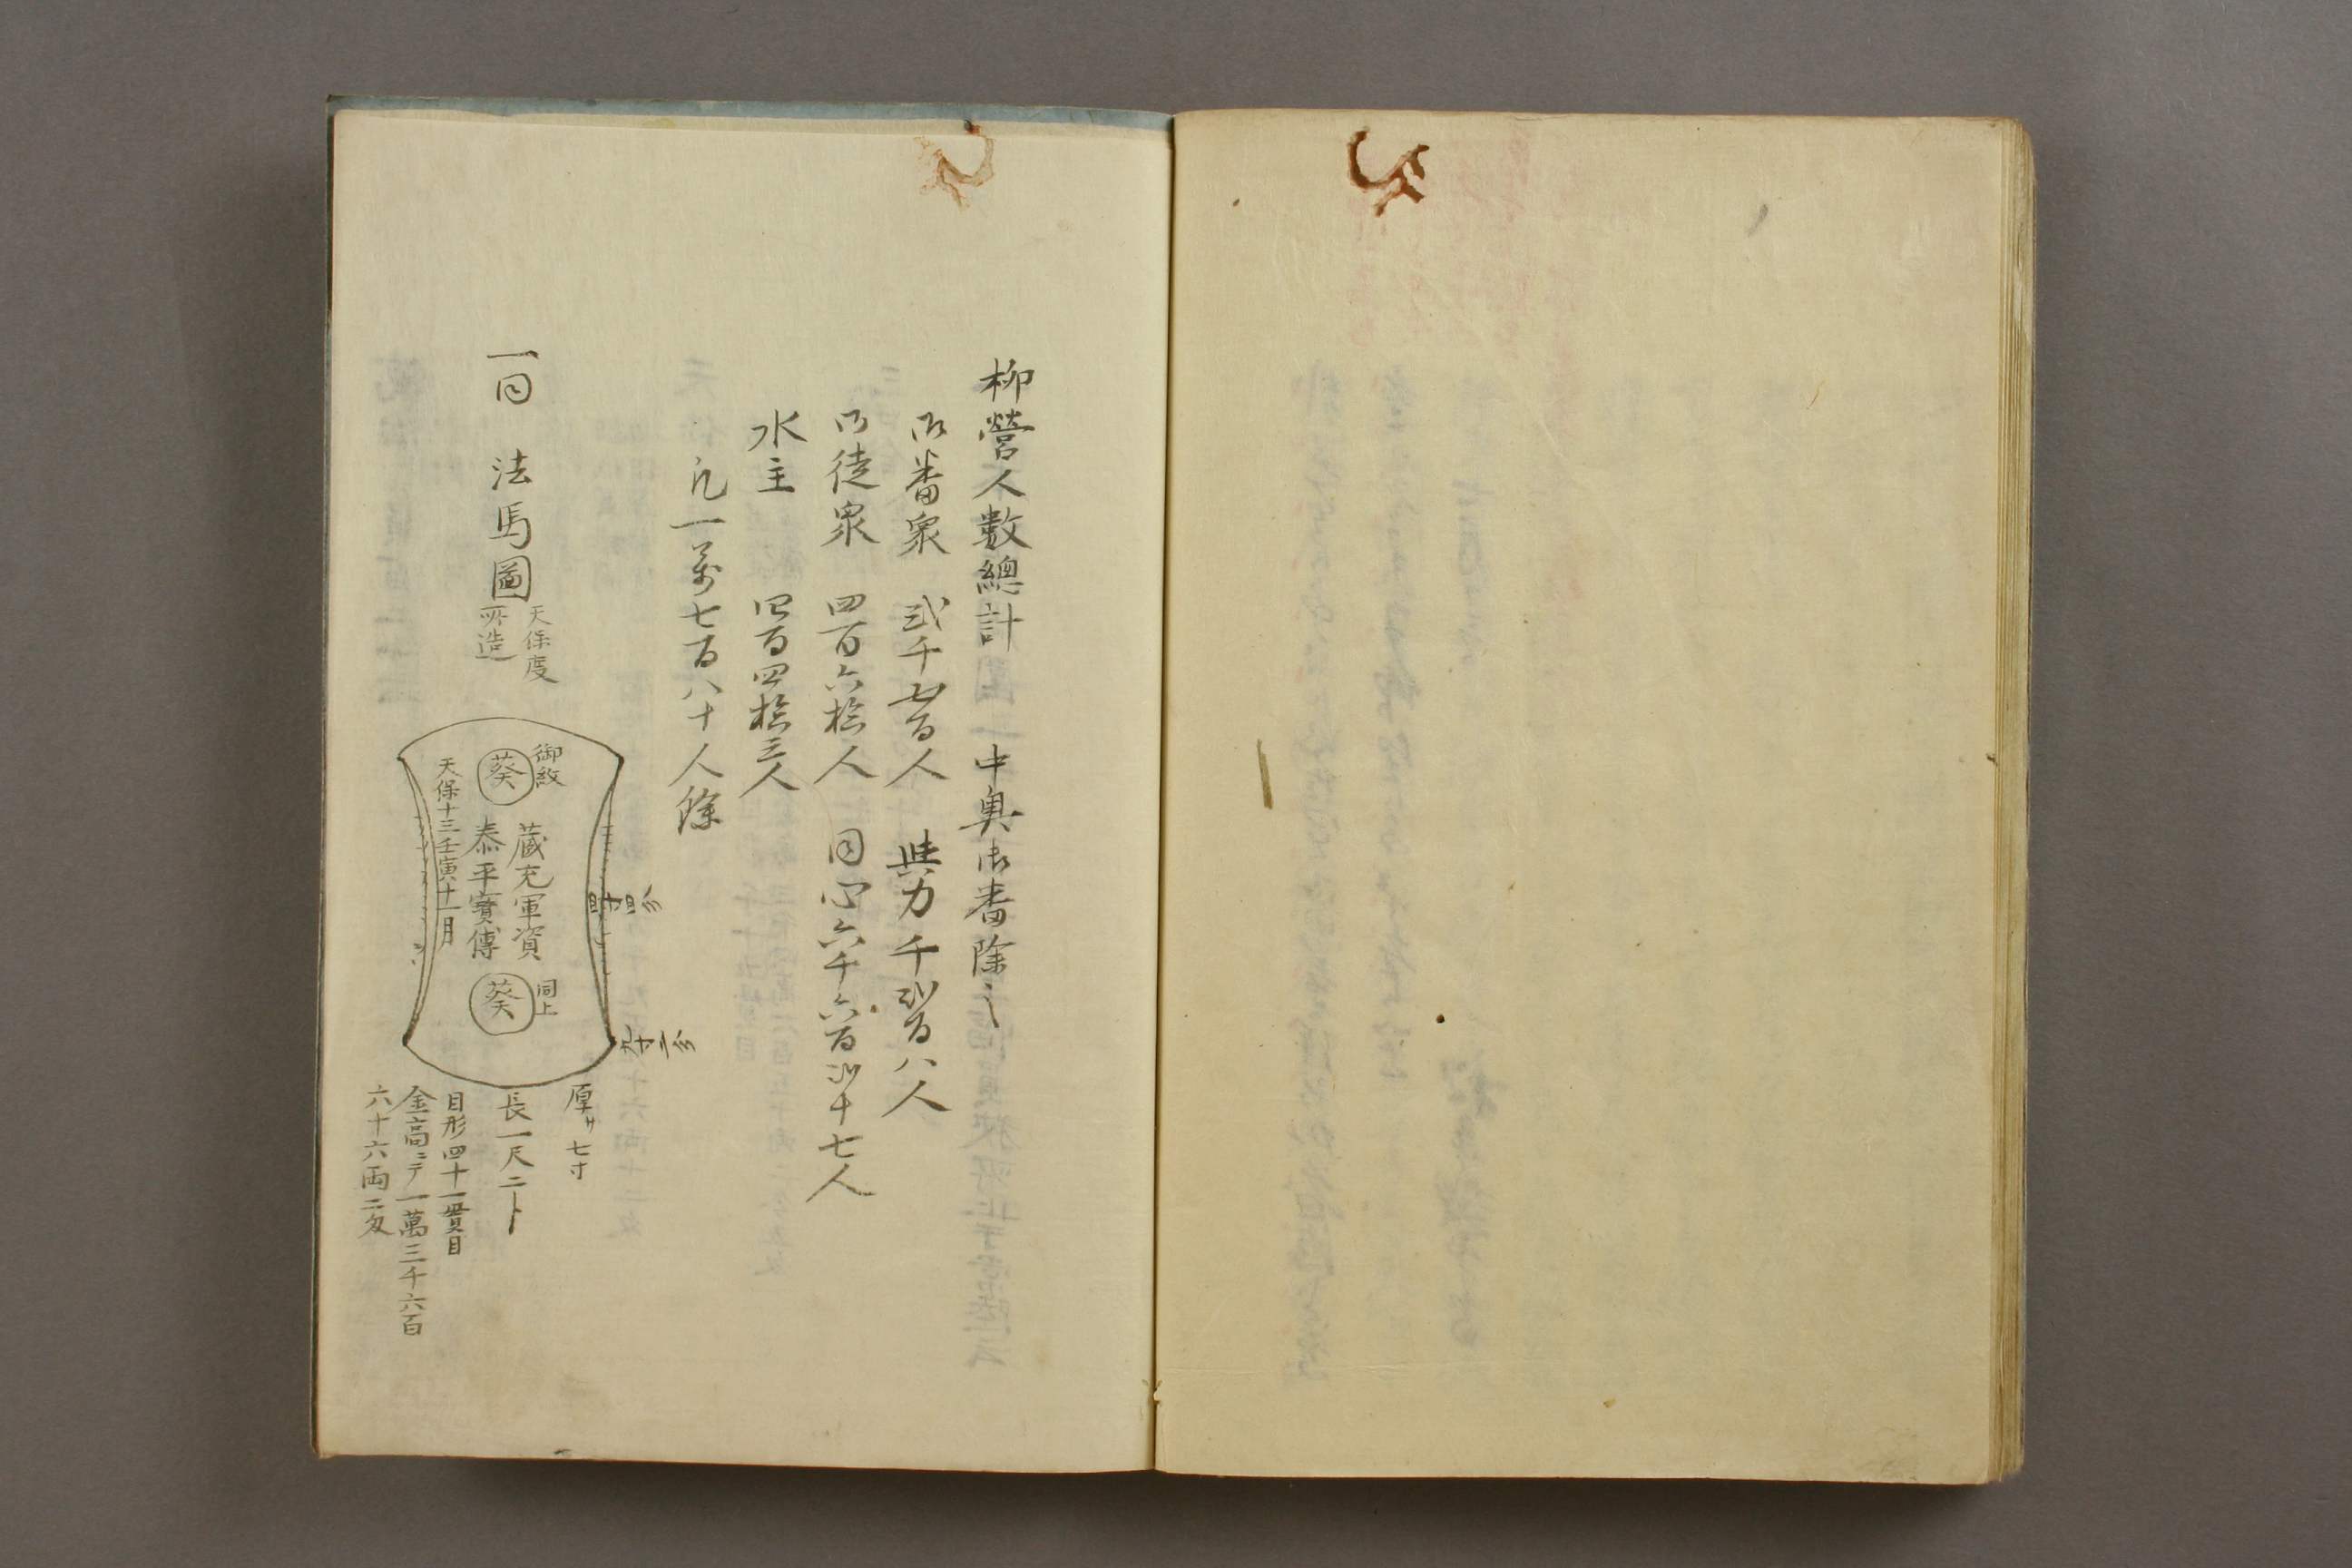 柳營人數總計　中奥御番除之
御番衆　弐千七百人　與力　千弐百八人
御徒衆　四百六拾人　同心　六千六百弐十七人
水主　四百四拾三人
凡一萬七百八十人餘
一同　法馬圖
天保度
所造
御紋
葵
蔵充軍資
泰平寶傳
天保十三壬寅十一月
同上
葵
九寸二分
厚サ七寸
長一尺二卜
目形四十一貫目
金高ニテ一萬三千六百
六十六両二匁